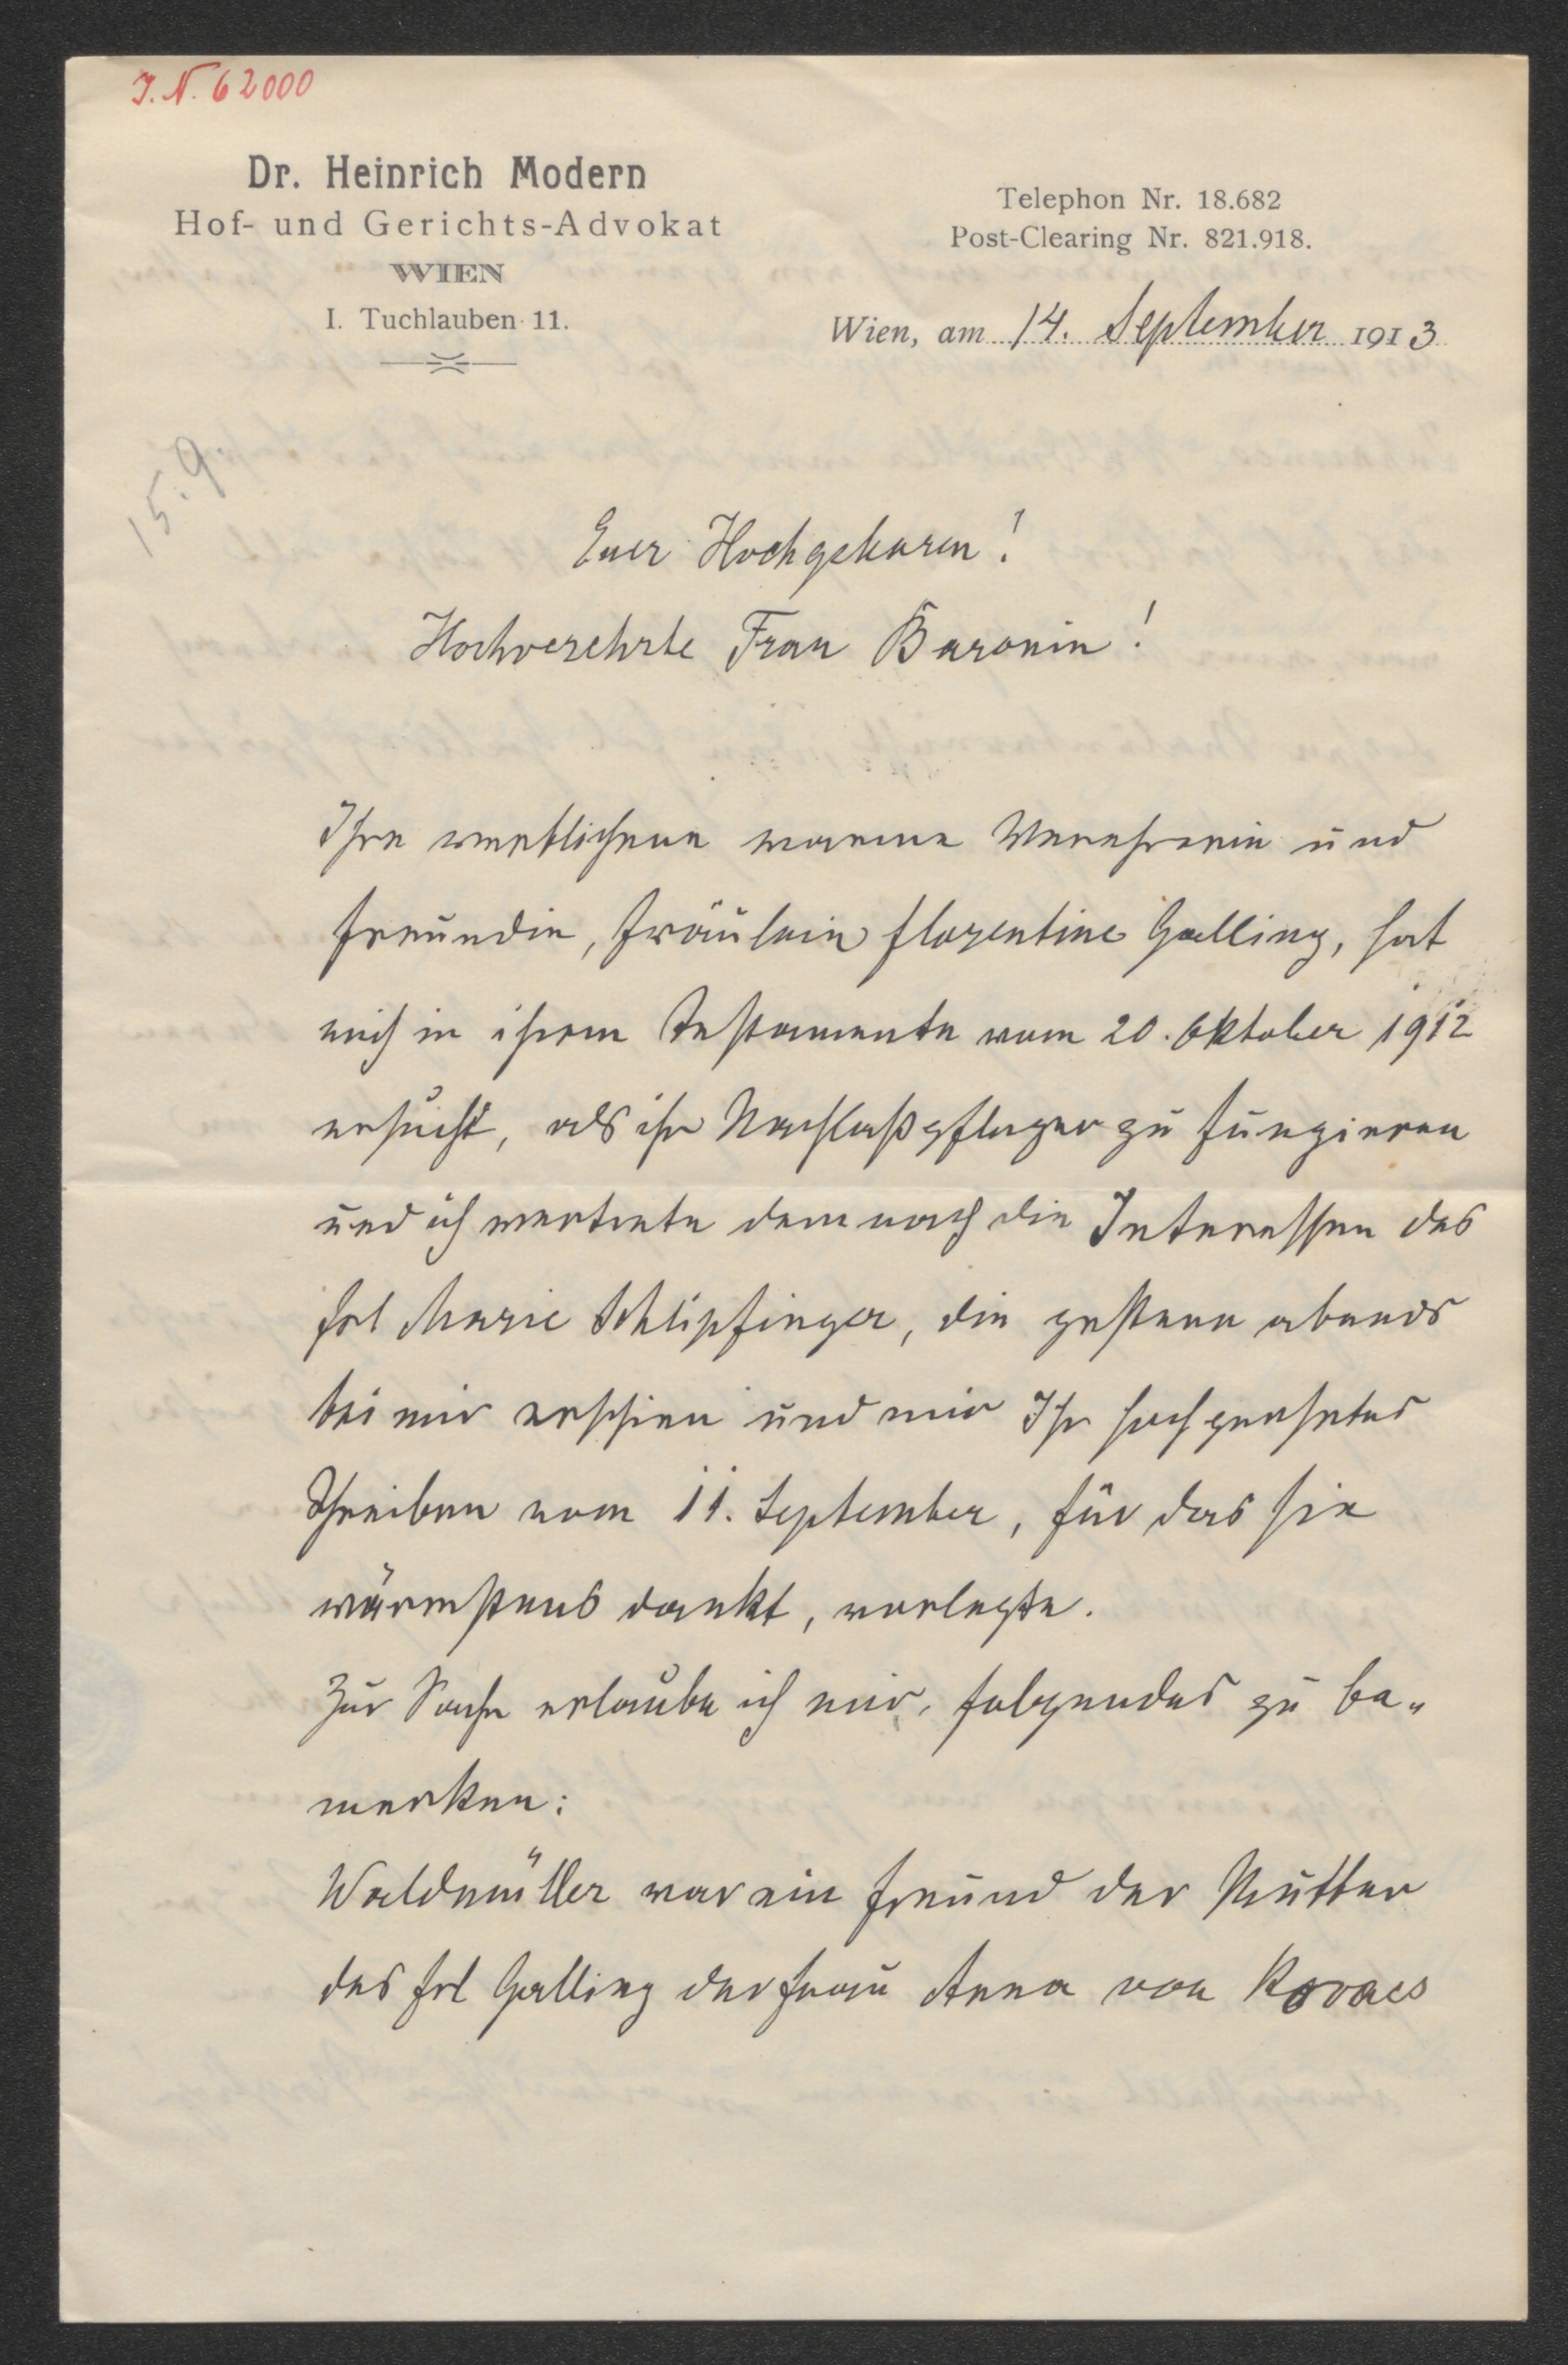 J. N. 62000
Dr. Heinrich Modern
Hof- und Gerichts-Advokat
WIEN
I. Tuchlauben 11.
Telephon Nr. 18.682
Post-Clearing Nr. 821.918.
Wien, am 14. September 1913
15.9.
Euer Hochgeboren!
Hochverehrte Frau Baronin!
Ihre verblichene warme Verehrerin und
Freundin, Fräulein Florentine Galling, hat
mich in ihrem Testamente vom 20. Oktober 1912
ersucht, als ihr Nachlaßpfleger zu fungieren
und ich vertrete demnach die Interessen des
Frl Marie Schlipfinger, die gestern abends
bei mir erschien und mir Ihr hochgeehrtes
Schreiben vom 11. September, für das sie
wärmstens dankt, vorlegte.
Zur Sache erlaube ich mir, folgendes zu be„
merken:
Waldmüller war ein Freund der Mutter
des Frl Galling der Frau Anna von Kovacs